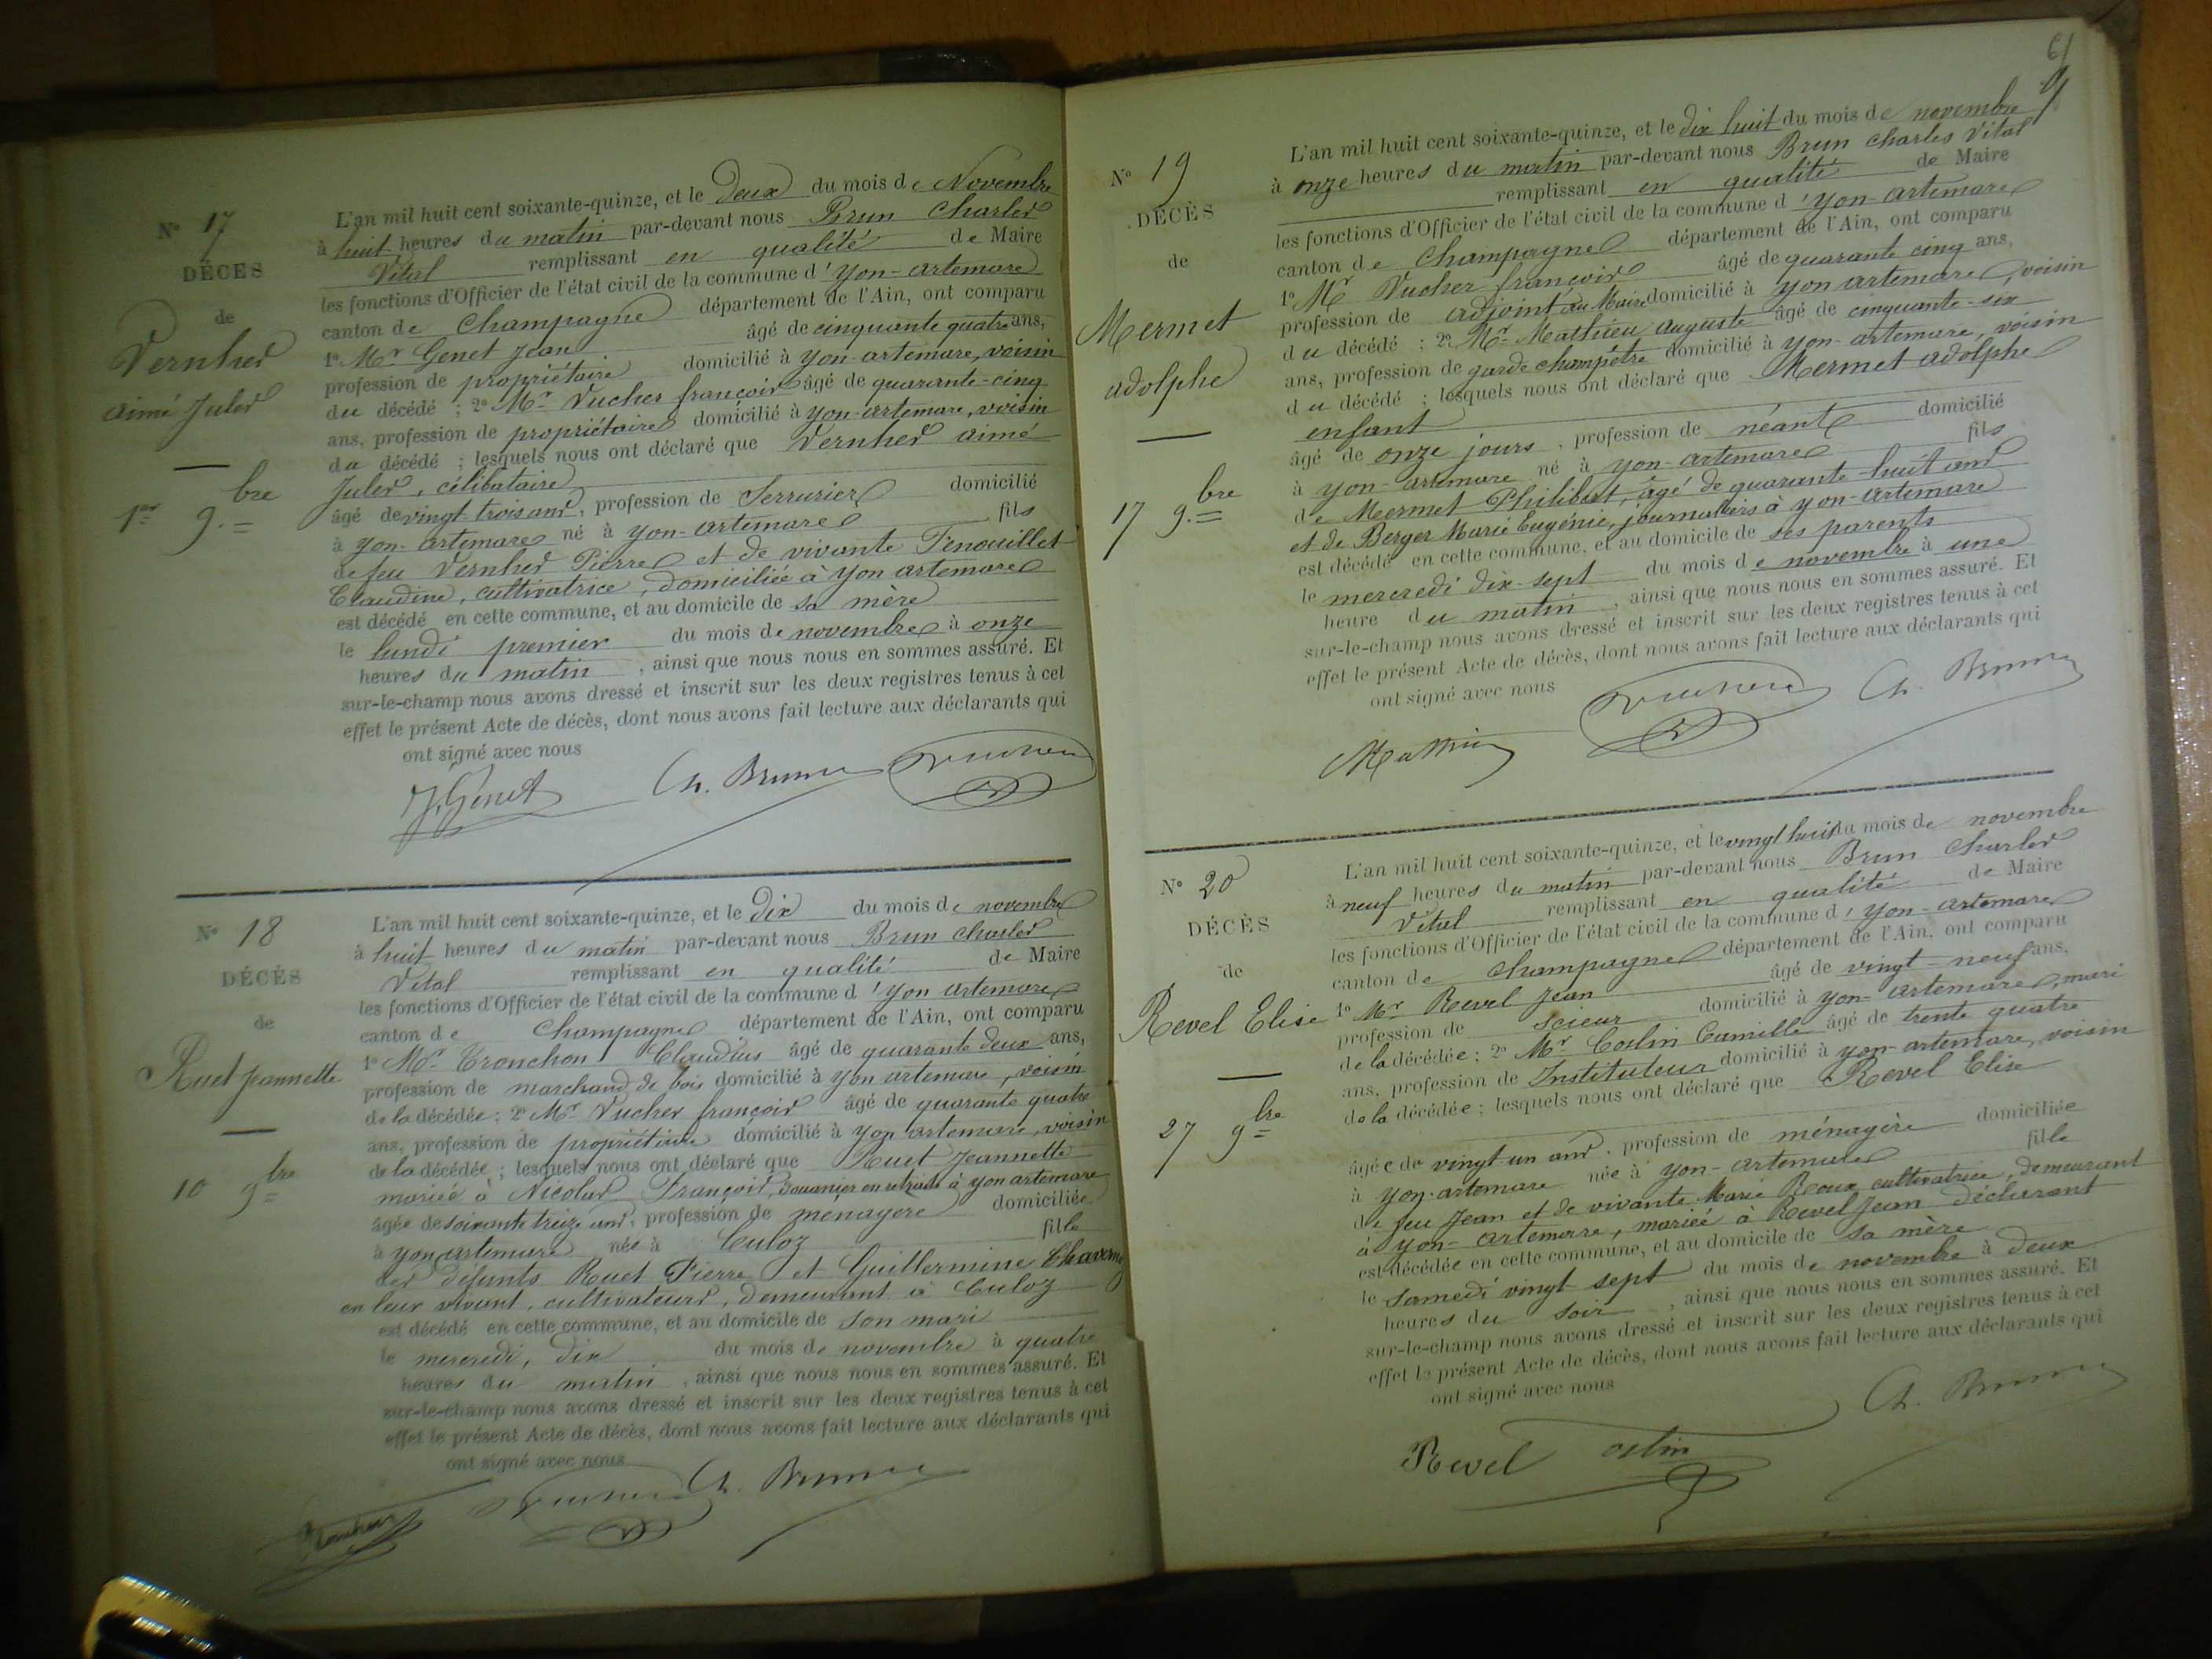 N° 17
DÉCÈS
de
Vernher
aimé Jules
1er 9.bre
L'an mil huit cent soixante-quinze, et le Deux du mois de Novembre
à huit heures du matin par-devant nous Brun Charles
Vital remplissant en qualité de Maire
les fonctions d'Officier de l'état civil de la commune d'yon-artemare
canton de Champagne département de l'Ain, ont comparu
1° Mr Genet Jean âgé de cinquante quatre ans,
profession de propriétaire domicilié à yon-artemare, voisin
du décédé ; 2° Mr Vucher françois âgé de quarante-cinq
ans, profession de propriétaire domicilié à yon-artemare, voisin
du décédé ; lesquels nous ont déclaré que Vernher aimé
Jules, célibataire
âgé de vingt trois ans, profession de Serrurier domicilié
à yon-artemare né à yon-artemare fils
de feu Vernher Pierre et de vivante Fenouillet
Claudine, cultivatrice, domiciliée à yon artemare
est décédé en cette commune, et au domicile de sa mère
le lundi premier du mois de novembre à onze
heures du matin, ainsi que nous nous en sommes assuré. Et
sur-le-champ nous avons dressé et inscrit sur les deux registres tenus à cet
effet le présent Acte de décès, dont nous avons fait lecture aux déclarants qui
ont signé avec nous
J. Genet Ch. Brun Vucher
N° 18
DÉCÈS
de
Ruet Jeannette
10 9bre
L'an mil huit cent soixante-quinze, et le Dix du mois de novembre
à huit heures du matin par-devant nous Brun Charles
Vital remplissant en qualité de Maire
les fonctions d'Officier de l'état civil de la commune d'yon artemare
canton de Champagne département de l'Ain, ont comparu
1° Mr Tronchon Claudius âgé de quarante deux ans,
profession de marchand de bois domicilié à yon artemare, voisin
de la décédée ; 2° Mr Vucher françois âgé de quarante quatre
ans, profession de propriétaire domicilié à yon artemare, voisin
de la décédée ; lesquels nous ont déclaré que Ruet Jeannette
mariée à Nicolas François, Douanier en retraite à yon artemare
âgée de soixante treize ans, profession de ménagère domiciliée
à yon artemare née à Culoz fille
des défunts Ruet Pierre et Guillermine
en leur vivant, cultivateurs, demeurant à Culoz
est décédé en cette commune, et au domicile de son mari
le mercredi, dix du mois de novembre à quatre
heures du matin, ainsi que nous nous en sommes assuré. Et
sur-le-champ nous avons dressé et inscrit sur les deux registres tenus à cet
effet le présent Acte de décès, dont nous avons fait lecture aux déclarants qui
ont signé avec nous
Vucher Ch. Brun
61
N° 19
DÉCÈS
de
Mermet
adolphe
17 9.bre
L'an mil huit cent soixante-quinze, et le dix huit du mois de novembre
à onze heures du matin par-devant nous Brun Charles Vital
remplissant en qualité de Maire
les fonctions d'Officier de l'état civil de la commune d'yon-artemare
canton de Champagne département de l'Ain, ont comparu
1° Mr Vucher françois âgé de quarante cinq ans,
profession de adjoint au Maire domicilié à yon artemare, voisin
du décédé ; 2° Mr Mathieu auguste âgé de cinquante-six
ans, profession de garde champêtre domicilié à yon-artemare, voisin
du décédé ; lesquels nous ont déclaré que Mermet adolphe
enfant
âgé de onze jours, profession de néant domicilié
à yon-artemare né à yon-artemare fils
de Mermet Philibert, âgé de quarante-huit ans
et de Berger Marie Eugénie, journaliers à yon-artemare
est décédé en cette commune, et au domicile de ses parents
le mercredi dix-sept du mois de novembre à une
heure du matin, ainsi que nous nous en sommes assuré. Et
sur-le-champ nous avons dressé et inscrit sur les deux registres tenus à cet
effet le présent Acte de décès, dont nous avons fait lecture aux déclarants qui
ont signé avec nous
Mathieu Vucher Ch. Brun
N° 20
DÉCÈS
de
Revel Elise
27 9bre
L'an mil huit cent soixante-quinze, et le vingt huit du mois de novembre
à neuf heures du matin par-devant nous Brun Charles
Vital remplissant en qualité de Maire
les fonctions d'Officier de l'état civil de la commune d'yon-artemare
canton de Champagne département de l'Ain, ont comparu
1° Mr Revel Jean âgé de vingt-neuf ans,
profession de scieur domicilié à yon-artemare, mari
de la décédée ; 2° Mr Costin Camille âgé de trente quatre
ans, profession de Instituteur domicilié à yon-artemare, voisin
de la décédée ; lesquels nous ont déclaré que Revel Elise
âgée de vingt-un ans, profession de ménagère domiciliée
à yon-artemare née à yon-artemare fille
de feu Jean et de vivante Marie Roux cultivatrice, demeurant
à yon-artemare, mariée à Revel Jean déclarant
est décédée en cette commune, et au domicile de sa mère
le Samedi vingt sept du mois de novembre à deux
heures du soir, ainsi que nous nous en sommes assuré. Et
sur-le-champ nous avons dressé et inscrit sur les deux registres tenus à cet
effet le présent Acte de décès, dont nous avons fait lecture aux déclarants qui
ont signé avec nous
Revel Ch. Brun